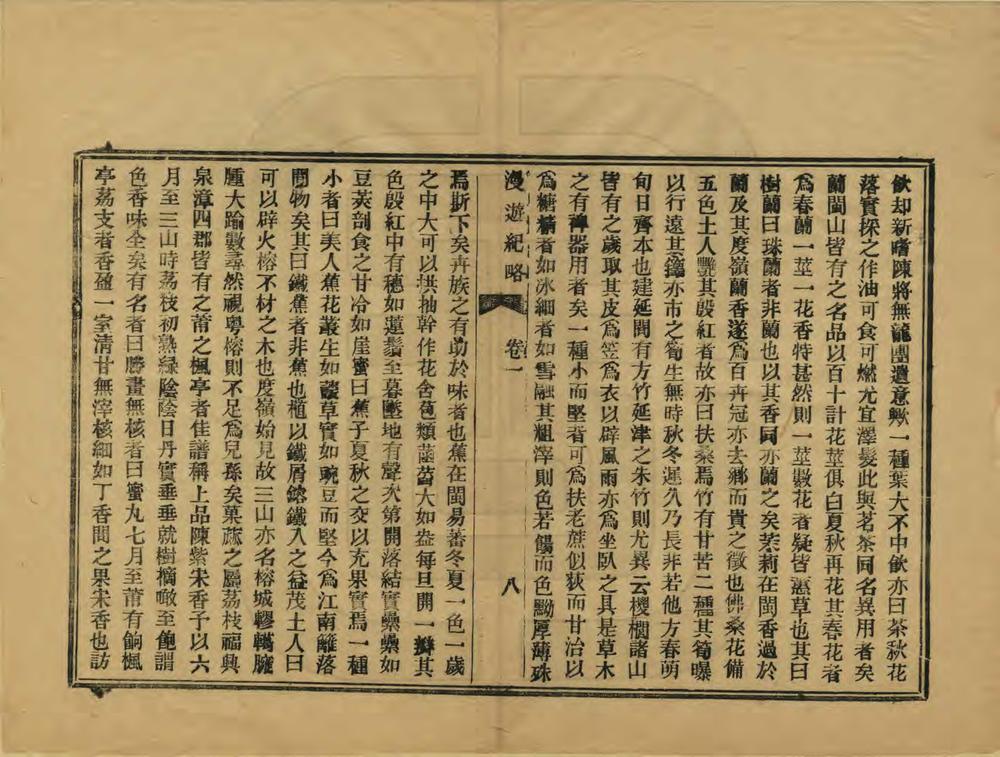 飲却新嗜陳將無龍團遺意歟一種葉大不中飲亦曰茶秋花
落實採之作油可食可燃尤宜澤髮此與茗茶同名異用者矣
蘭閩山皆有之名品以百十計花莖俱白夏秋再花其春花者
為春蘭一莖一花香特甚然則一莖數花者疑皆蕙草也其曰
樹蘭曰珠蘭者非蘭也以其香同亦蘭之矣茉莉在閩香過於
蘭及其度嶺蘭香遂為百卉冠亦去鄉而貴之徵也佛桑花備
五色土人艷其殷紅者故亦曰扶桑焉竹有甘苦二種其筍曝
以行遠其籜亦市之筍生無時秋冬遲久乃長非若他方春萌
旬日齊本也建延間有方竹延津之朱竹則尤異云椶櫚諸山
皆有之歲取其皮為笠為衣以辟風雨亦為坐臥之具是草木
之有裨器用者矣一種小而堅者可為扶老蔗似荻而甘冶以
為糖糖者如冰細者如雪融其粗滓則色若餳而色黝厚薄殊
漫遊紀略 卷一 八
焉斯下矣卉族之有助於味者也蕉在閩易蕃冬夏一色一歲
之中大可以拱抽幹作花含苞類菡萏大如盎每旦開一瓣其
色殷紅中有穗如蓮鬚至暮墜地有聲次第開落結實纍纍如
豆莢剖食之甘冷如崖蜜曰蕉子夏秋之交以充果實焉一種
小者曰美人蕉花叢生如蘐草實如豌豆而堅今為江南籬落
間物矣其曰鐵蕉者非蕉也植以鐵屑鎔鐵入之益茂土人曰
可以辟火榕不材之木也度嶺始見故三山亦名榕城轇轕臃
腫大踰數尋然視粵榕則不足為兒孫矣菓蓏之屬荔枝福興
泉漳四郡皆有之莆之楓亭者佳譜稱上品陳紫宋香予以六
月至三山時荔枝初熟綠陰陰日丹實垂垂就樹摘噉至飽謂
色香味全矣有名者曰勝畫無核者曰蜜丸七月至莆有餉楓
亭荔支者香盈一室清甘無滓核細如丁香問之果宋香也訪